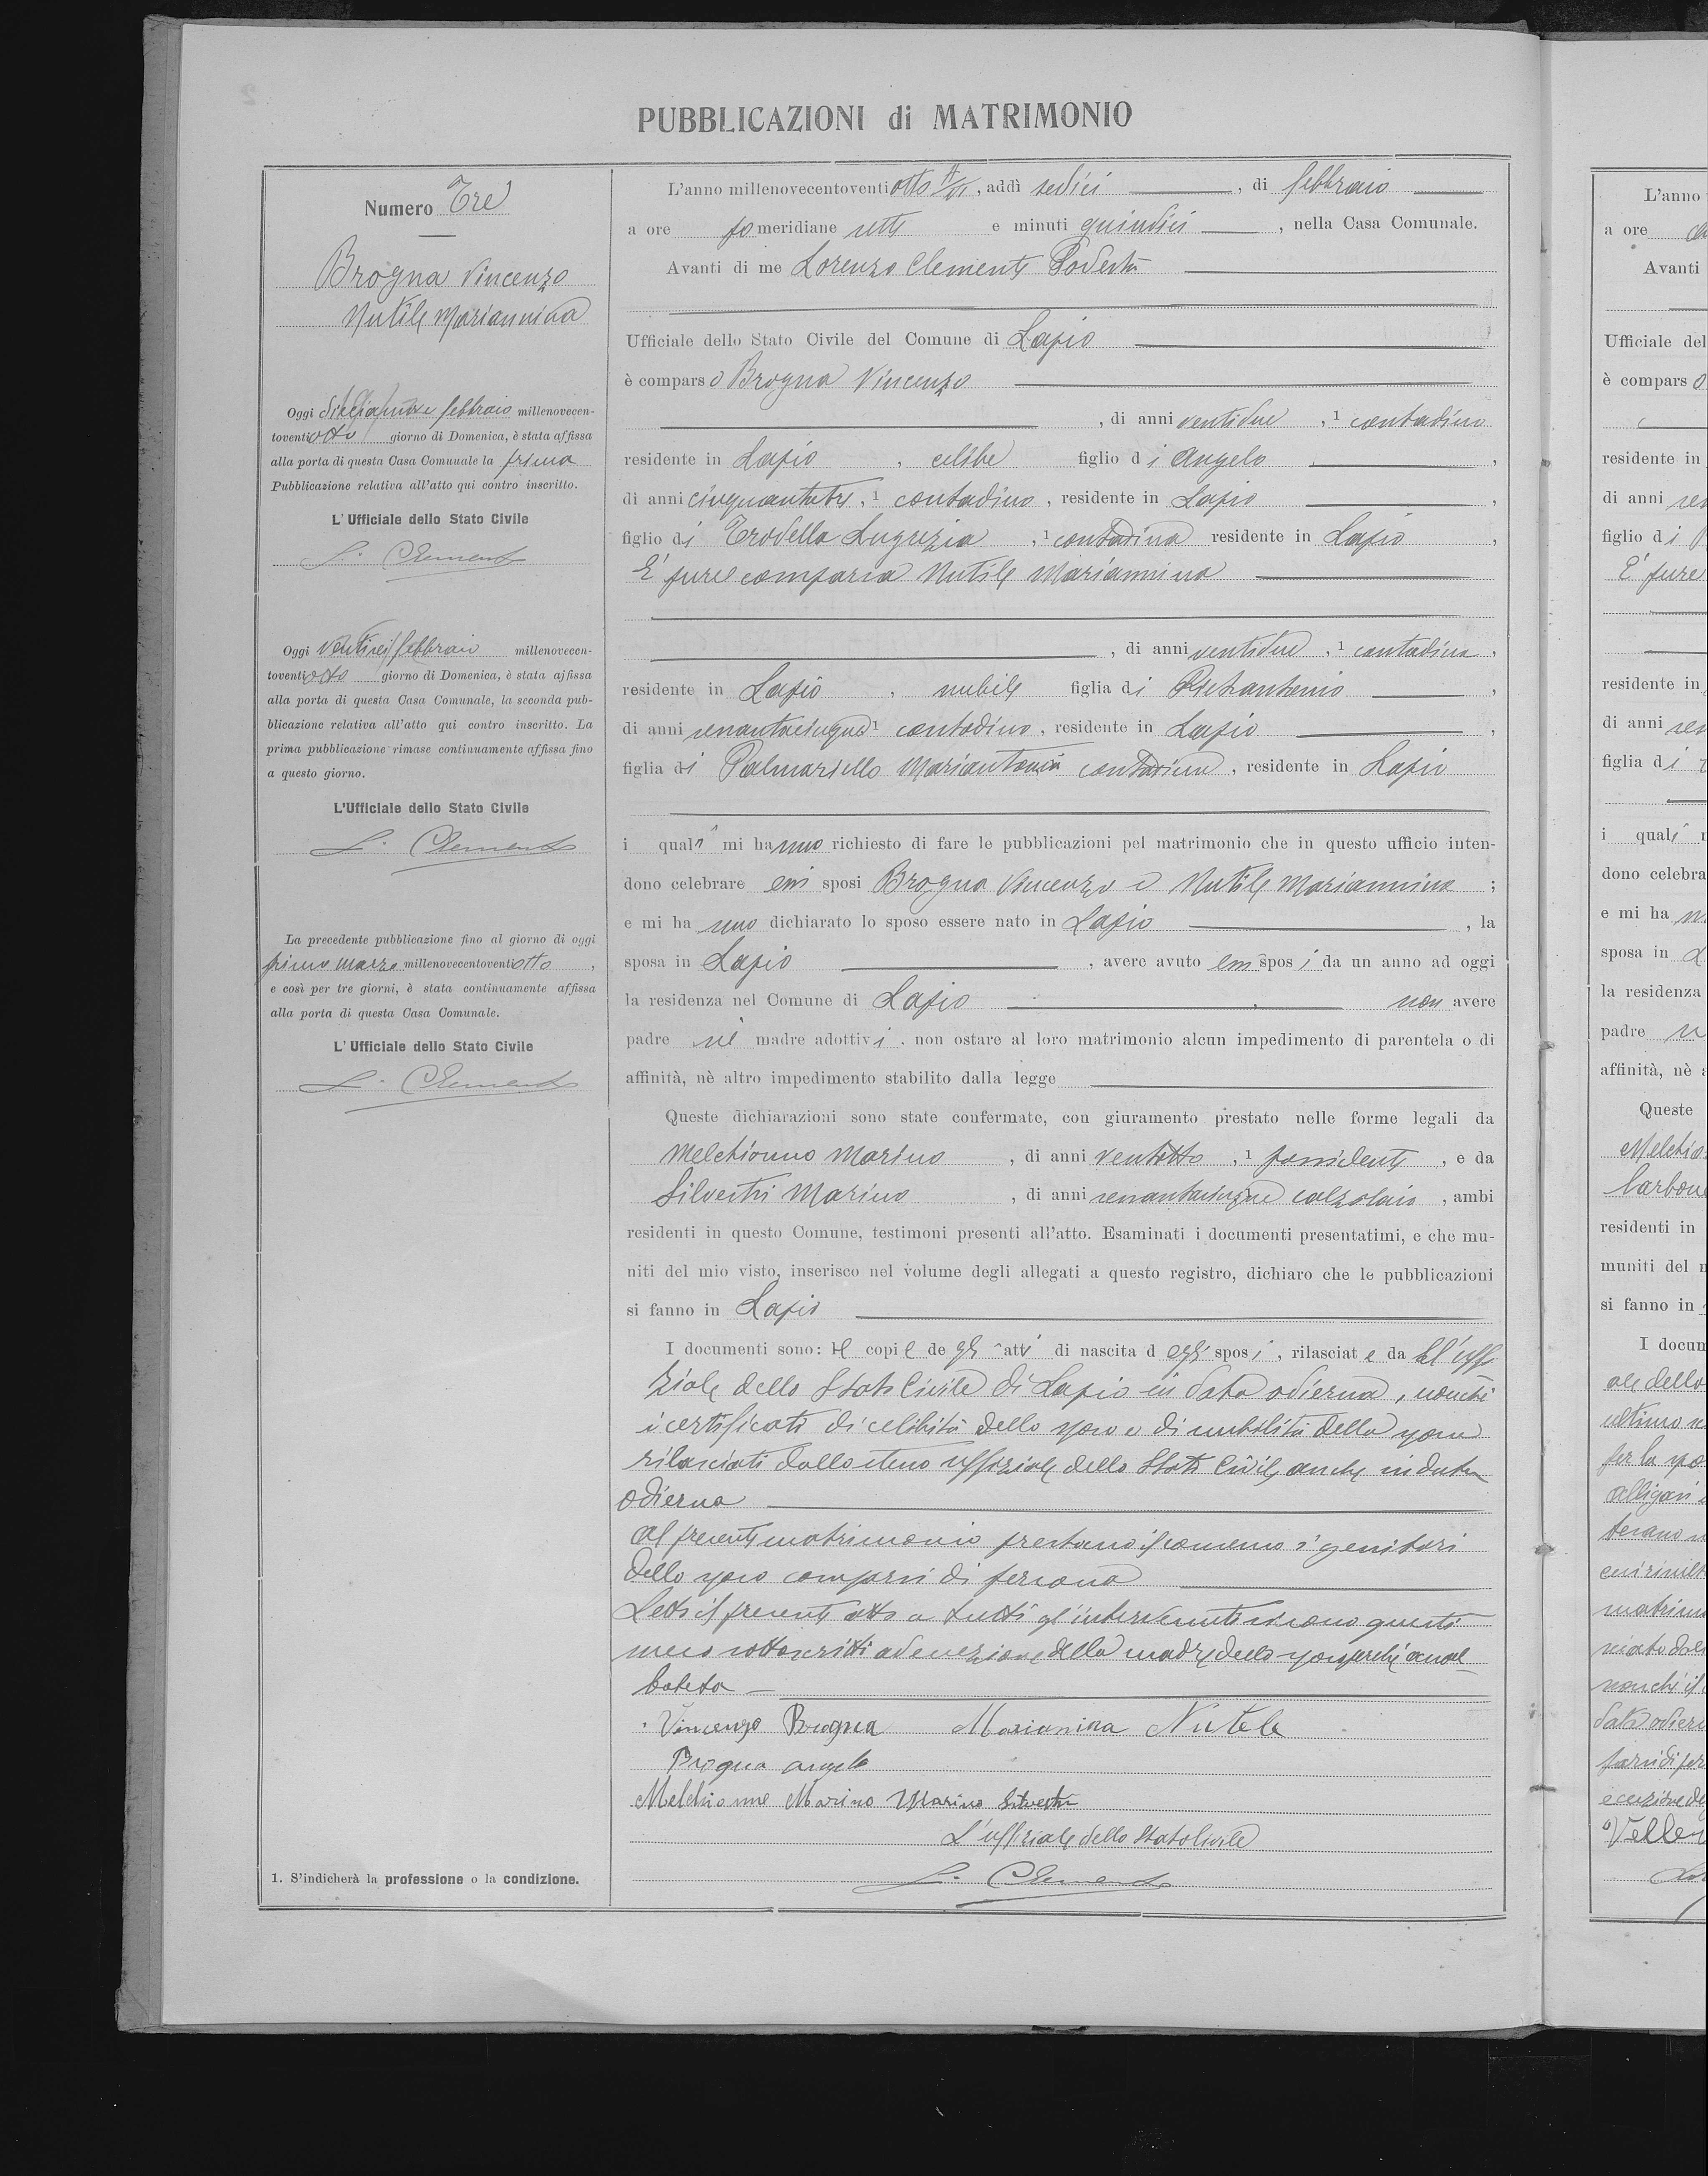 PUBBLICAZIONI di MATRIMONIO
Numero Tre
Brogna Vincenzo
Nutile Mariannina
Oggi febbraio millenovecen-
toventiotto giorno di Domenica, è stata affissa
alla porta di questa Casa Comunale la prima
Pubblicazione relativa all'atto qui contro inscritto.
L'Ufficiale dello Stato Civile
L. Clemente
Oggi ventisei febbraio millenovecen-
toventiotto giorno di Domenica, è stata affissa
alla porta di questa Casa Comunale, la seconda pub-
blicazione relativa all'atto qui contro inscritto. La
prima pubblicazione rimase continuamente affissa fino
a questo giorno.
L'Ufficiale dello Stato Civile
L. Clemente
La precedente pubblicazione fino al giorno di oggi
primo marzo millenovecentoventiotto,
e così per tre giorni, è stata continuamente affissa
alla porta di questa Casa Comunale.
L'Ufficiale dello Stato Civile
L. Clemente
1. S'indicherà la professione o la condizione.
L'anno millenovecentoventiotto, addì sedici, di febbraio
a ore pomeridiane sette e minuti quindici, nella Casa Comunale.
Avanti di me Lorenzo Clemente Podestà
Ufficiale dello Stato Civile del Comune di Lapio
è comparso Brogna Vincenzo
, di anni ventidue, 1 contadino
residente in Lapio, celibe figlio di Angelo,
di anni cinquantatre, 1 contadino, residente in Lapio,
figlio di Trodella Lugrezia, 1 contadina residente in Lapio,
E' pure comparsa Nutile Mariannina
, di anni ventidue, 1 contadina,
residente in Lapio, nubile figlia di Pietrantonio,
di anni sessantacinque 1 contadino, residente in Lapio,
figlia di Palmariello Mariantonia contadina, residente in Lapio
i quali mi hanno richiesto di fare le pubblicazioni pel matrimonio che in questo ufficio inten-
dono celebrare essi sposi Brogna Vincenzo e Nutile Mariannina;
e mi hanno dichiarato lo sposo essere nato in Lapio, la
sposa in Lapio, avere avuto essi sposi da un anno ad oggi
la residenza nel Comune di Lapio non avere
padre nè madre adottivi. non ostare al loro matrimonio alcun impedimento di parentela o di
affinità, nè altro impedimento stabilito dalla legge
Queste dichiarazioni sono state confermate, con giuramento prestato nelle forme legali da
Melchionno Marino, di anni ventotto, 1 possidente, e da
Silvestri Marino, di anni sessantacinque calzolaio, ambi
residenti in questo Comune, testimoni presenti all'atto. Esaminati i documenti presentatimi, e che mu-
niti del mio visto, inserisco nel volume degli allegati a questo registro, dichiaro che le pubblicazioni
si fanno in Lapio
I documenti sono: le copie degli atti di nascita degli sposi, rilasciate dall'uffi
ziale dello Stato Civile di Lapio in data odierna, nonchè
i certificati di celibità dello sposo e di nubilità della sposa
rilasciati dallo stesso uffiziale dello Stato Civile anche in data
odierna
Al presente matrimonio prestano il consenso i genitori
dello sposo comparsi di persona
Letto il presente atto a tutti gl'intervenuti si sono questi
meco sottoscritti ad eccezione della madre dello sposo perchè anal
fabeta
Vincenzo Brogna Mariannina Nutile
Brogna Angelo
Melchionne Marino Marino Silvestri
L'uffiziale dello Stato Civile
L. Clemente
L'anno
a ore
Avanti
Ufficiale del
è comparso
residente in
di anni
figlio di
E' pure
residente in
di anni
figlia di
i quali
dono celebra
e mi ha
sposa in
la residenza
padre
affinità, nè
Queste
Melchio
Carbone
residenti in
muniti del
si fanno in
I docum